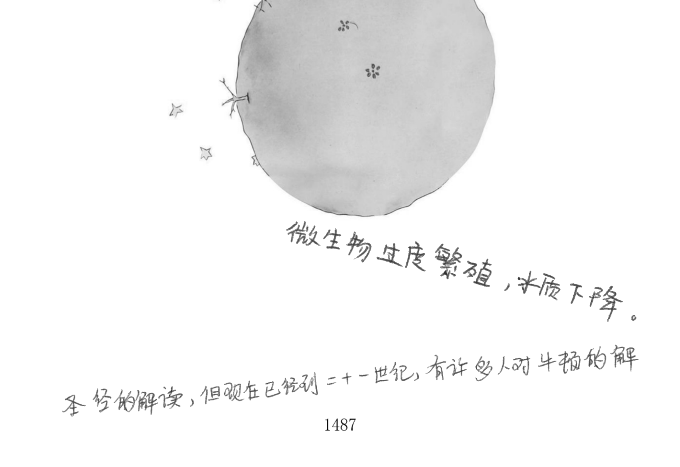 微生物过度繁殖，水质下降。
圣经的解读，但现在已经到二十一世纪，有许多人对牛顿的解
1487